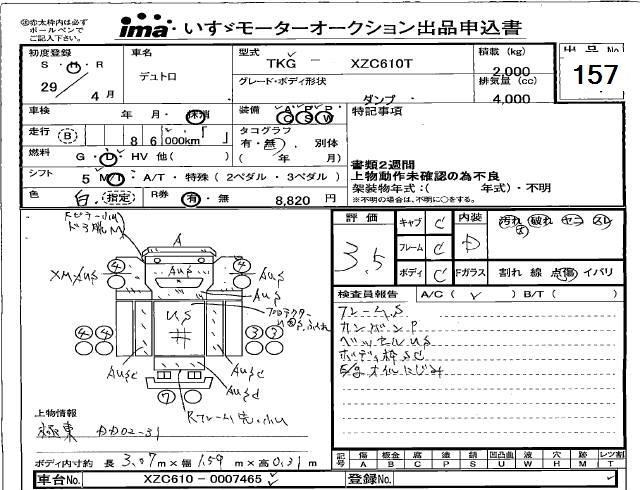 ※赤太枠内は必ずボールペンでご記入下さい。
ima いすゞモーターオークション出品申込書
初度登録
S・H・R
29 / 4月
車名
デュトロ
型式
TKG - XZC610T
グレード・ボディ形状
ダンプ
積載 (kg)
2,000
排気量 (cc)
4,000
出品No
157
車検 年 月・抹消
装備 A/C P/S P/W
特記事項
走行 B 86 000km
タコグラフ
有・無 別体
( 年 月)
燃料 G・D・HV 他( )
シフト 5 M/T・A/T・特殊(2ペダル・3ペダル)
色 白 指定
R券 有・無 8,820 円
書類2週間
上物動作未確認の為不良
架装物年式:( 年式)・不明
※不明の場合は、不明に○をする。
評価
3.5
キャブ C
フレーム C
ボディ C
内装 D
汚れ 破れ セコ スレ
Fガラス 割れ 線 点傷 イバリ
検査員報告 A/C( レ ) B/T( )
フレームS
カンバンP
ベッセルUS
ボディ枠SC
E/gオイルにじみ
A
AUS
XM AUS
AUS
AUS
US
井
プロテクター
AUSC
AUSC
AUSC
4 4 4 4 3 3 7
上物情報
極東 DD02-31
ボディ内寸約 長 3.07m×幅 1.59m×高 0.31m
記号 傷A 板金B 腐C 塗P 錆S 凹凸曲U 波W 穴H 跡M レツ割T
車台No. XZC610-0007465
登録No.